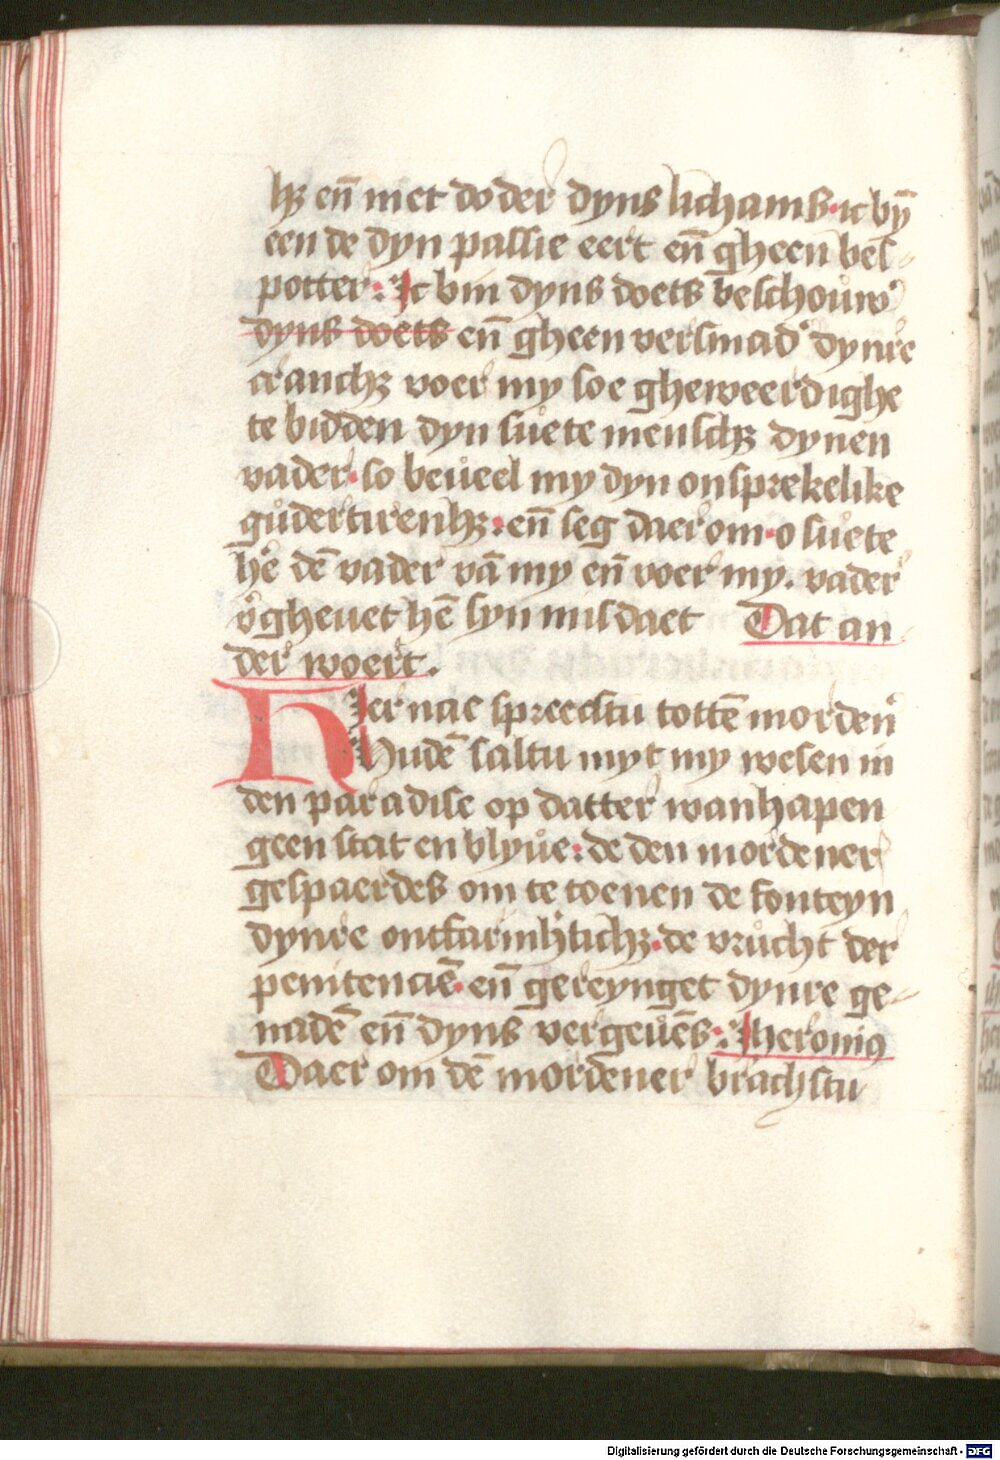 hꝫ en̄ niet doder dyns lichams· ic bȳ
een de dyn passie eert en̄ gheen bes
potter: Ic bin dyns doets beschouw'
dyns doets en̄ gheen versmad' dynre
cranchꝫ voer my soe gheweerdighe
te bidden dyn suete menschꝫ dynen
vader· so beueel my dyn onsprekelike
gůdertirenhꝫ: en̄ seg daer om· o suete
he' dē vader vā my en̄ voer my. vader
v'gheuet hē syn misdaet Dat an
der woert.
Hier nae spreecstu tottē morden'
Hudē saltu myt my wesen in
den paradise op datter wanhapen
geen stat en blyue: de den mordener
gespaerdes om te toenen de fonteyn
dynre ontfarmh'tichꝫ· de vrůcht der
penitenciē· en̄ gereynget dynre ge
nadē en̄ dyns vergeuēs: Iheronimꝰ
Daer om dē mordener brachstu
Digitalisierung gefördert durch die Deutsche Forschungsgemeinschaft - DFG